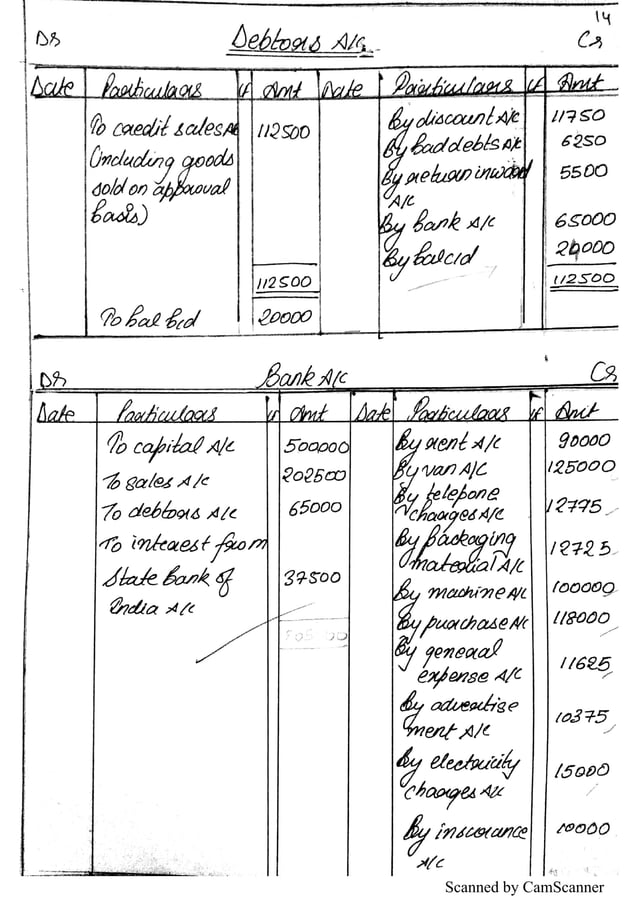 14
Dr Debtors A/c Cr
Date Particulars lf Amt Date Particulars lf Amt
To credit sales A/c 112500 By discount A/c 11750
(including goods By bad debts A/c 6250
sold on approval By return inward 5500
basis) A/c
By bank A/c 65000
By bal c/d 24000
112500 112500
To bal b/d 20000
Dr Bank A/c Cr
Date Particulars lf Amt Date Particulars lf Amt
To capital A/c 500000 By rent A/c 90000
To sales A/c 202500 By van A/c 125000
To debtors A/c 65000 By telepone
charges A/c 12775
To interest from By packaging
material A/c 12725
State Bank of 37500 By machine A/c 100000
India A/c By purchase A/c 118000
By general
expense A/c 11625
By advertise
ment A/c 10375
By electricity
charges A/c 15000
By insurance 10000
A/c
Scanned by CamScanner